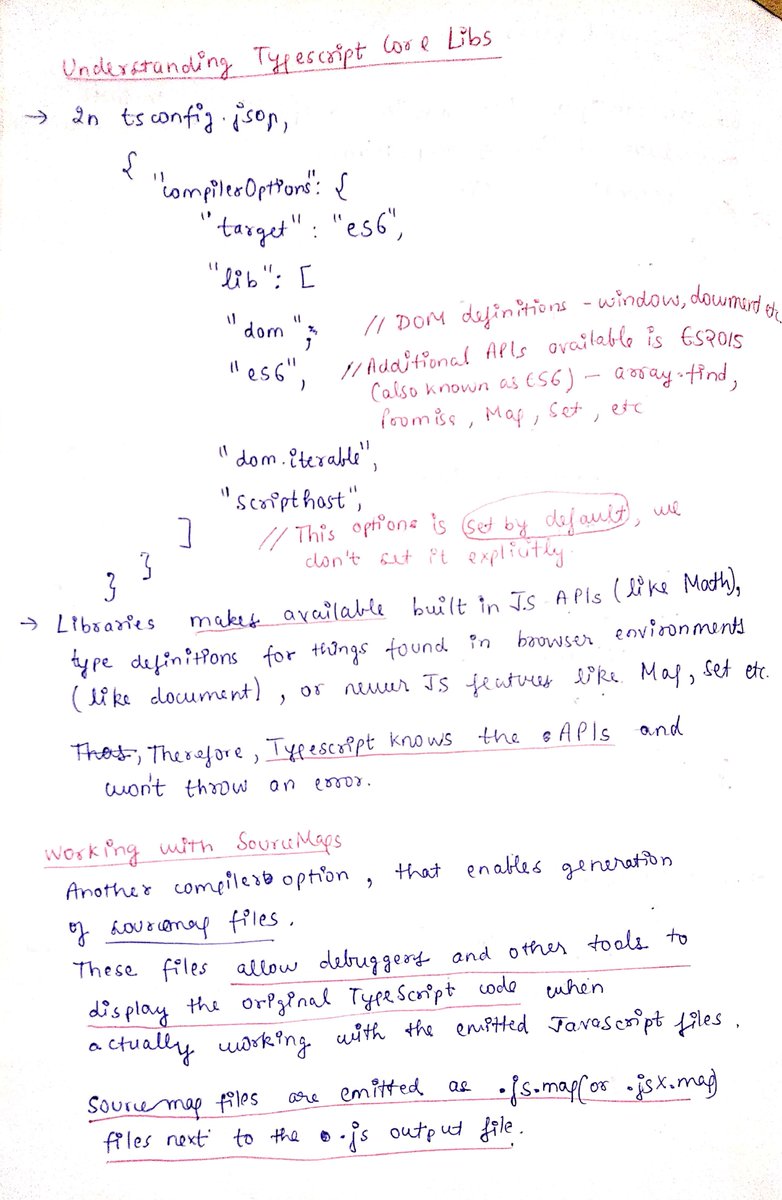 Understanding Typescript Core Libs
→ In tsconfig.json,
{
"compilerOptions": {
"target" : "es6",
"lib": [
"dom", // DOM definitions - window, document etc.
"es6", // Additional APIs available is ES2015
(also known as ES6) - array.find,
Promise, Map, Set, etc
"dom.iterable",
"scripthost",
]
// This options is set by default, we
don't set it explicitly.
}
}
→ Libraries makes available built in JS APIs (like Math),
type definitions for things found in browser environments
(like document), or newer JS features like Map, Set etc.
Thus, Therefore, Typescript knows the APIs and
won't throw an error.
Working with SourceMaps
Another compiler option, that enables generation
of sourcemap files.
These files allow debuggers and other tools to
display the original TypeScript code when
actually working with the emitted Javascript files.
Sourcemap files are emitted as .js.map (or .jsx.map)
files next to the .js output file.